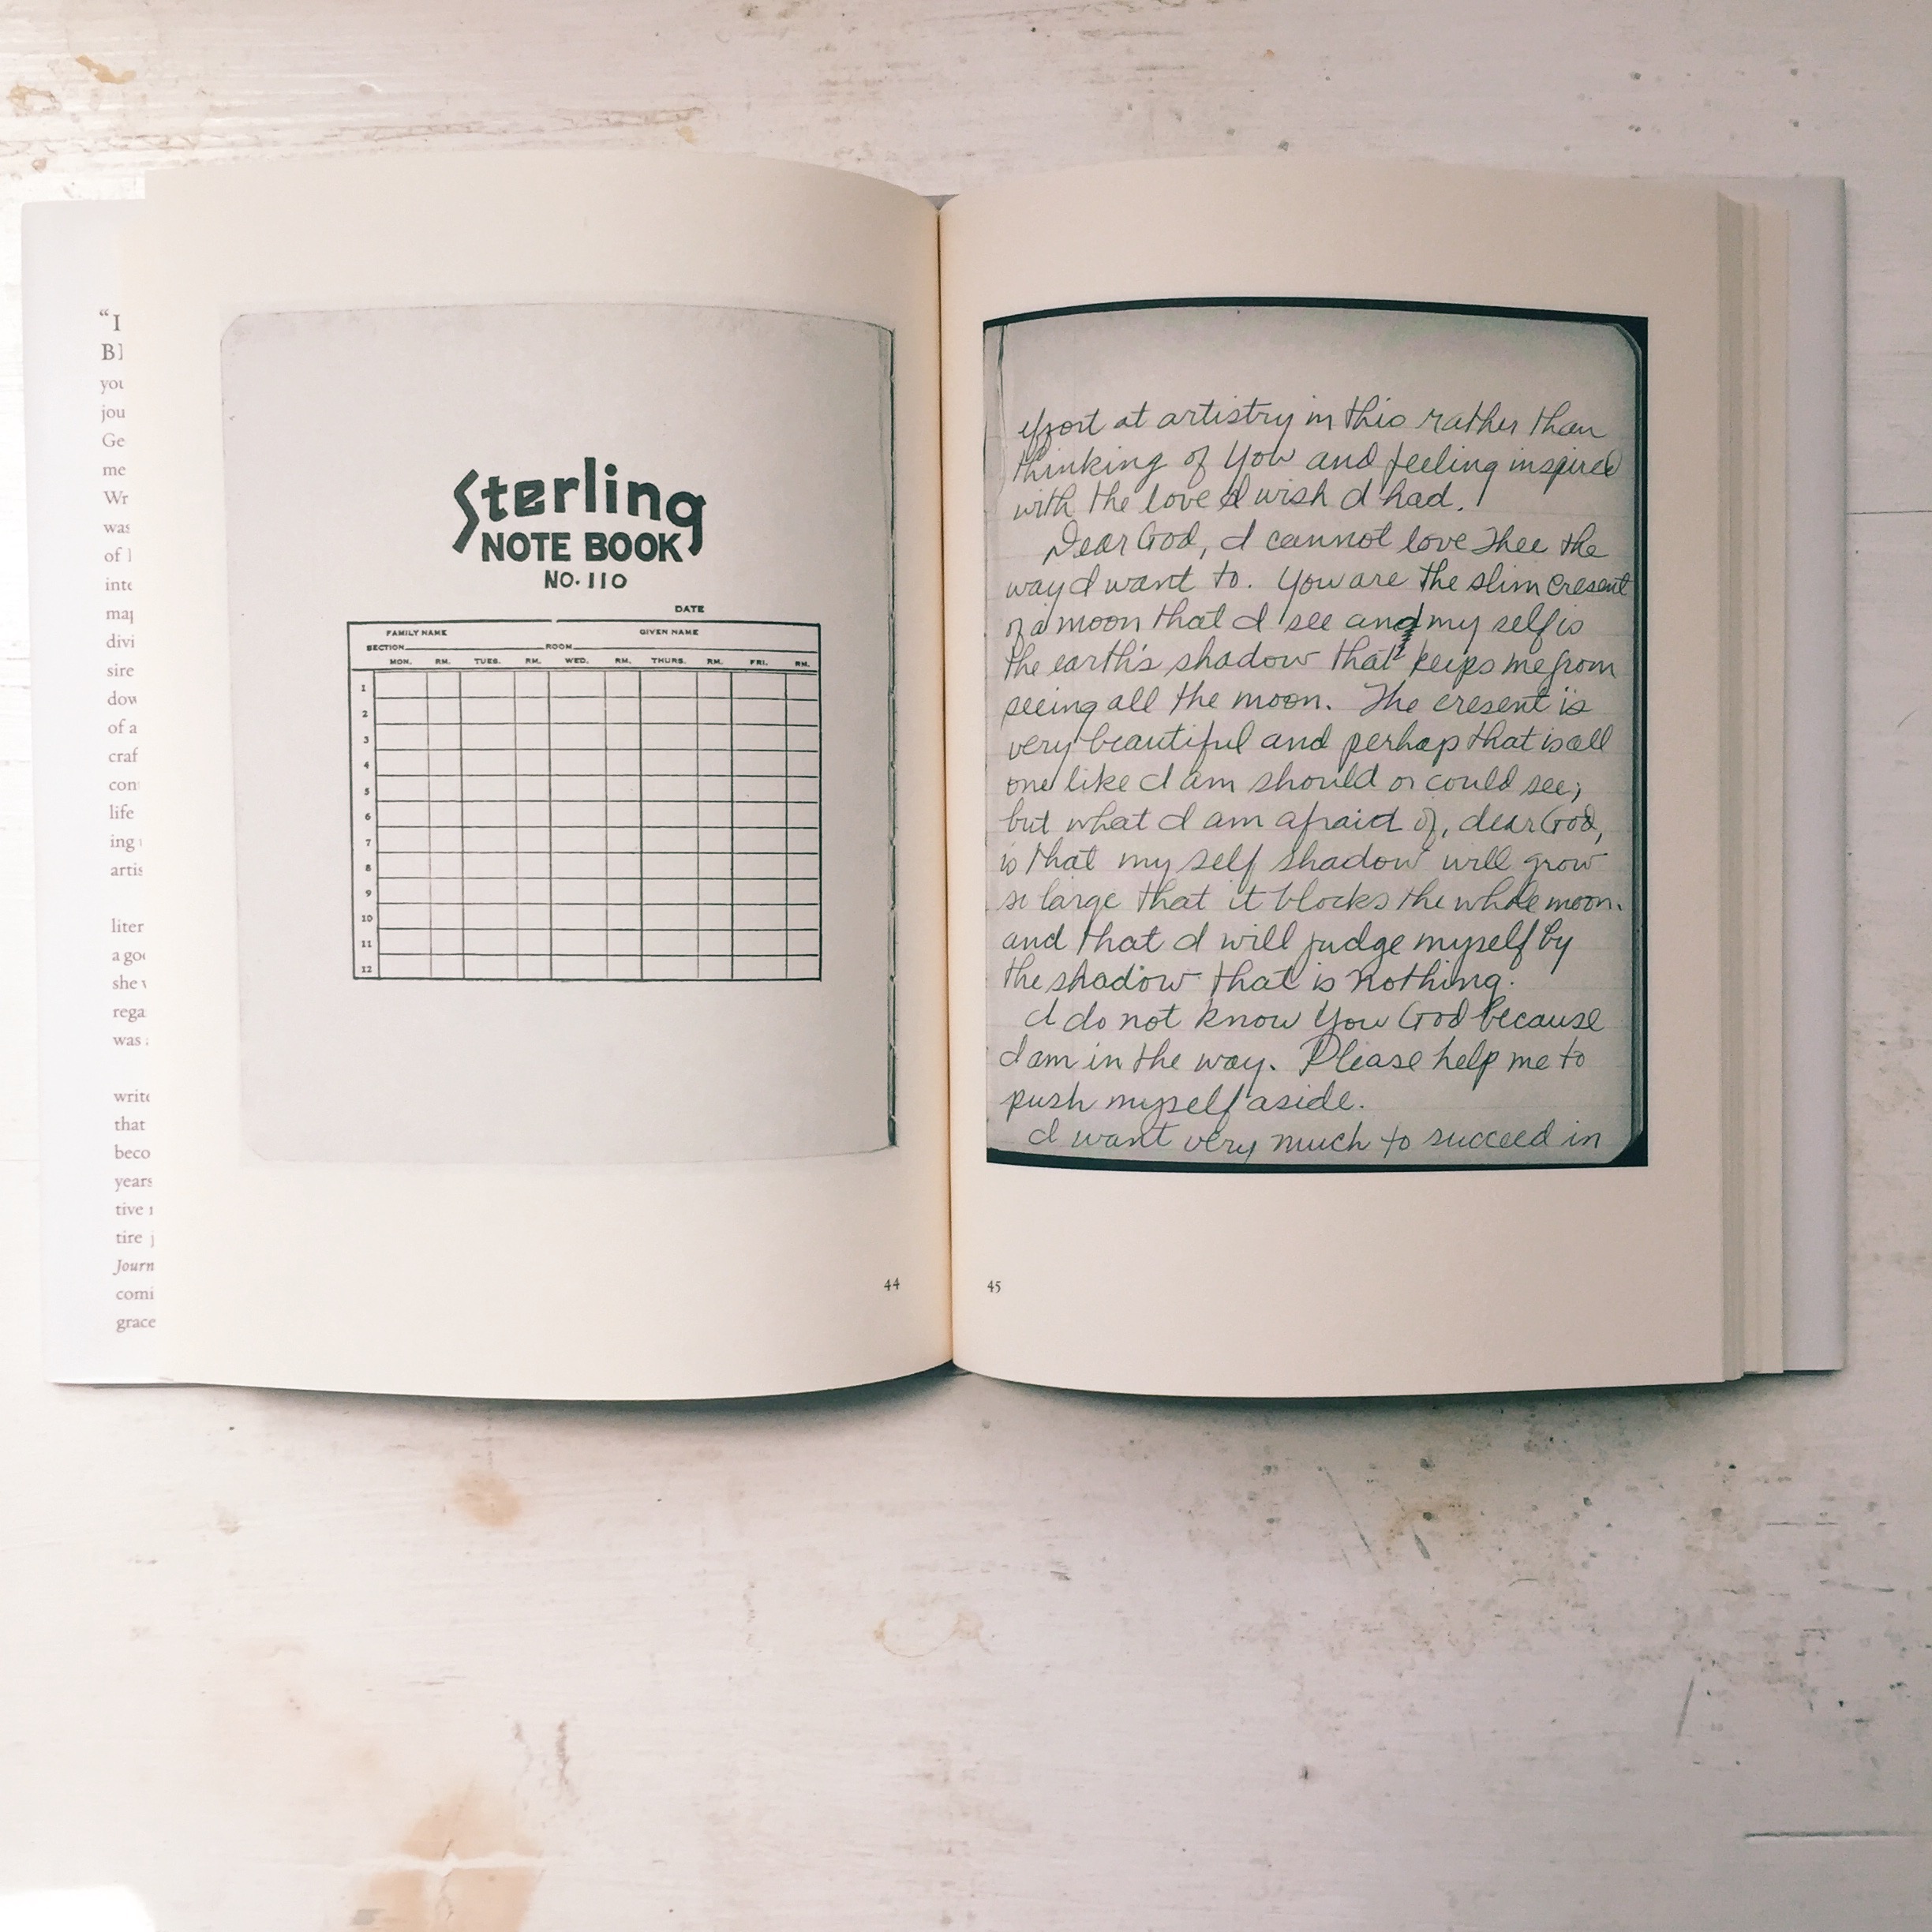 “I
BI
you
jou
Ge
me
Wr
was
of I
inte
map
divi
sire
dow
of a
craf
con
life
ing
artis
liter
a goo
she v
rega
was a
write
that
beco
years
tive
tire j
Journ
comi
grace
Sterling
NOTE BOOK
NO. 110
DATE
FAMILY NAME GIVEN NAME
SECTION ROOM
MON. RM. TUES. RM. WED. RM. THURS. RM. FRI. RM.
1
2
3
4
5
6
7
8
9
10
11
12
44
effort at artistry in this rather than
thinking of You and feeling inspired
with the love I wish I had.
Dear God, I cannot love Thee the
way I want to. You are the slim cresent
of a moon that I see and my self is
the earth's shadow that keeps me from
seeing all the moon. The cresent is
very beautiful and perhaps that is all
one like I am should or could see;
but what I am afraid of, dear God,
is that my self shadow will grow
so large that it blocks the whole moon.
and that I will judge myself by
the shadow that is nothing.
I do not know You God because
I am in the way. Please help me to
push myself aside.
I want very much to succeed in
45